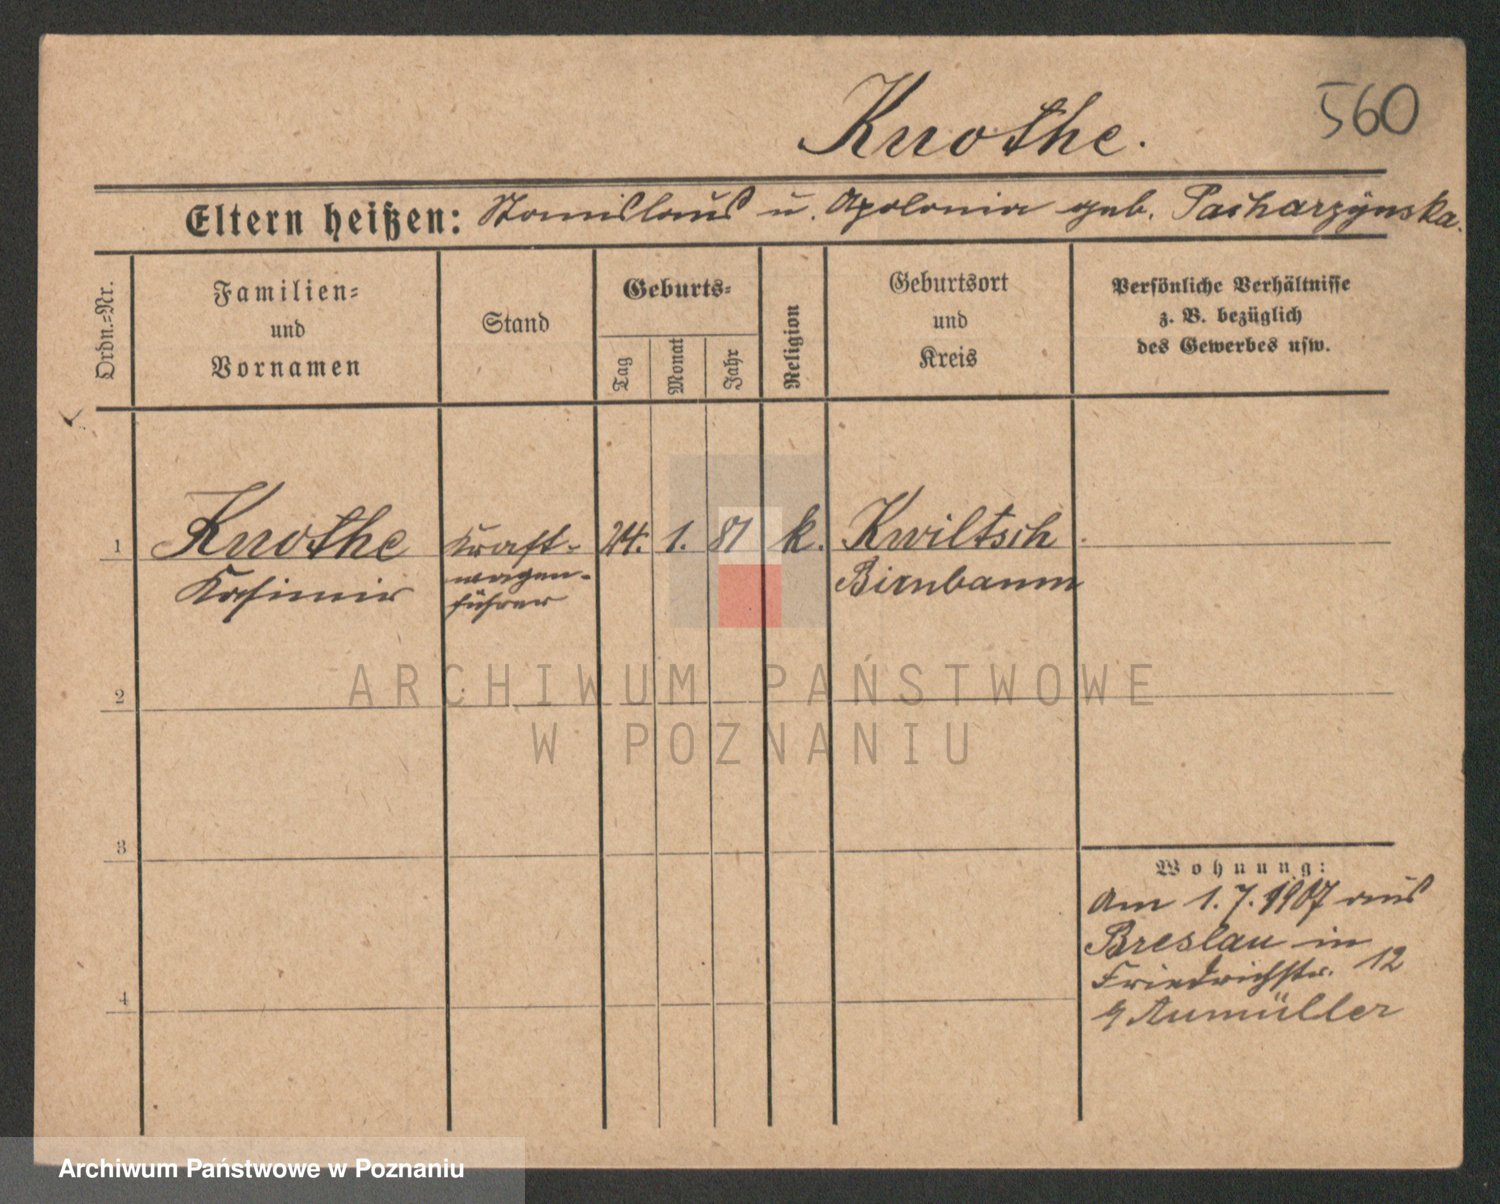 560
Knothe.
Eltern heißen: Stanislaus u. Apolonia geb. Pacharzynska.
Ordn.-Nr.
Familien-
und
Vornamen
Stand
Geburts-
Tag
Monat
Jahr
Religion
Geburtsort
und
Kreis
Persönliche Verhältnisse
z. B. bezüglich
des Gewerbes usw.
1
Knothe
Kasimir
Kraft-
wagen-
führer
24.
1.
81
k.
Kwiltsch
Birnbaum
2
ARCHIWUM PAŃSTWOWE
W POZNANIU
3
4
Wohnung:
Am 1. 7. 1907 aus
Breslau in
Friedrichstr. 12
Aumüller
Archiwum Państwowe w Poznaniu